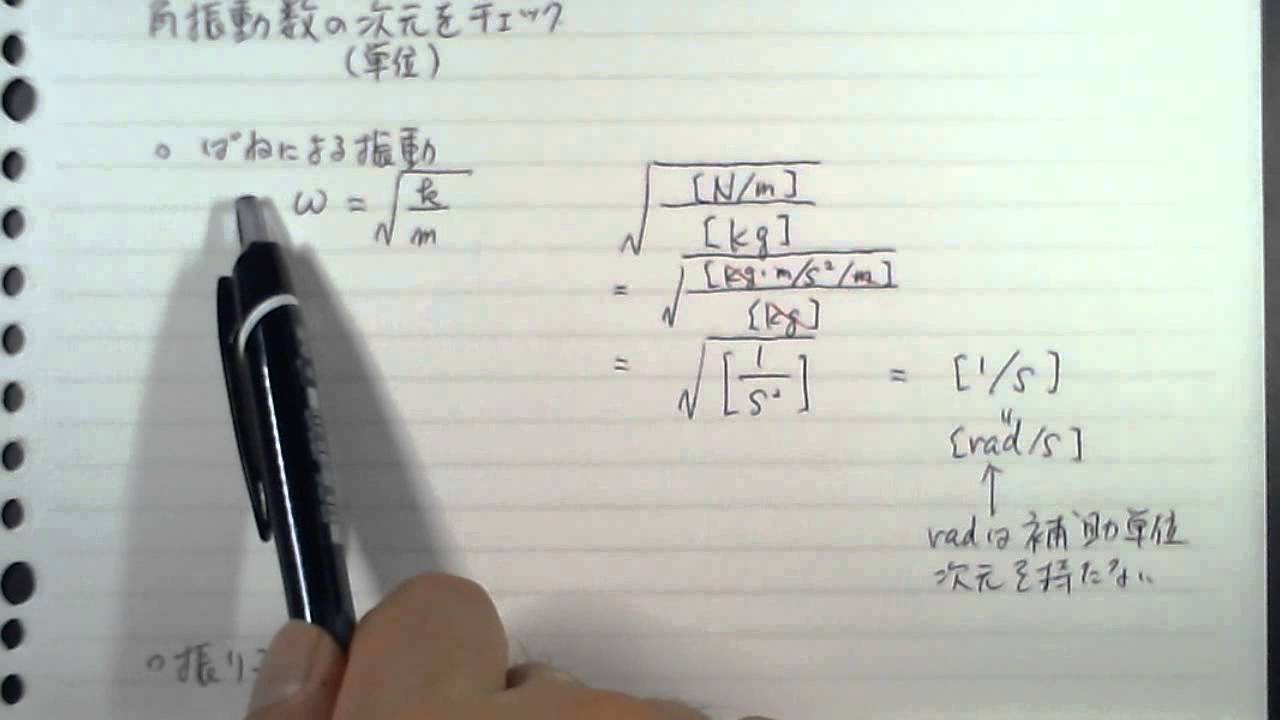 角振動数の次元をチェック
(単位)
○ ばねによる振動
ω = √(k/m)
√([N/m]/[kg])
= √([kg・m/s²/m]/[kg])
= √[1/s²] = [1/s]
〃
[rad/s]
↑
radは補助単位
次元を持たない
○振り